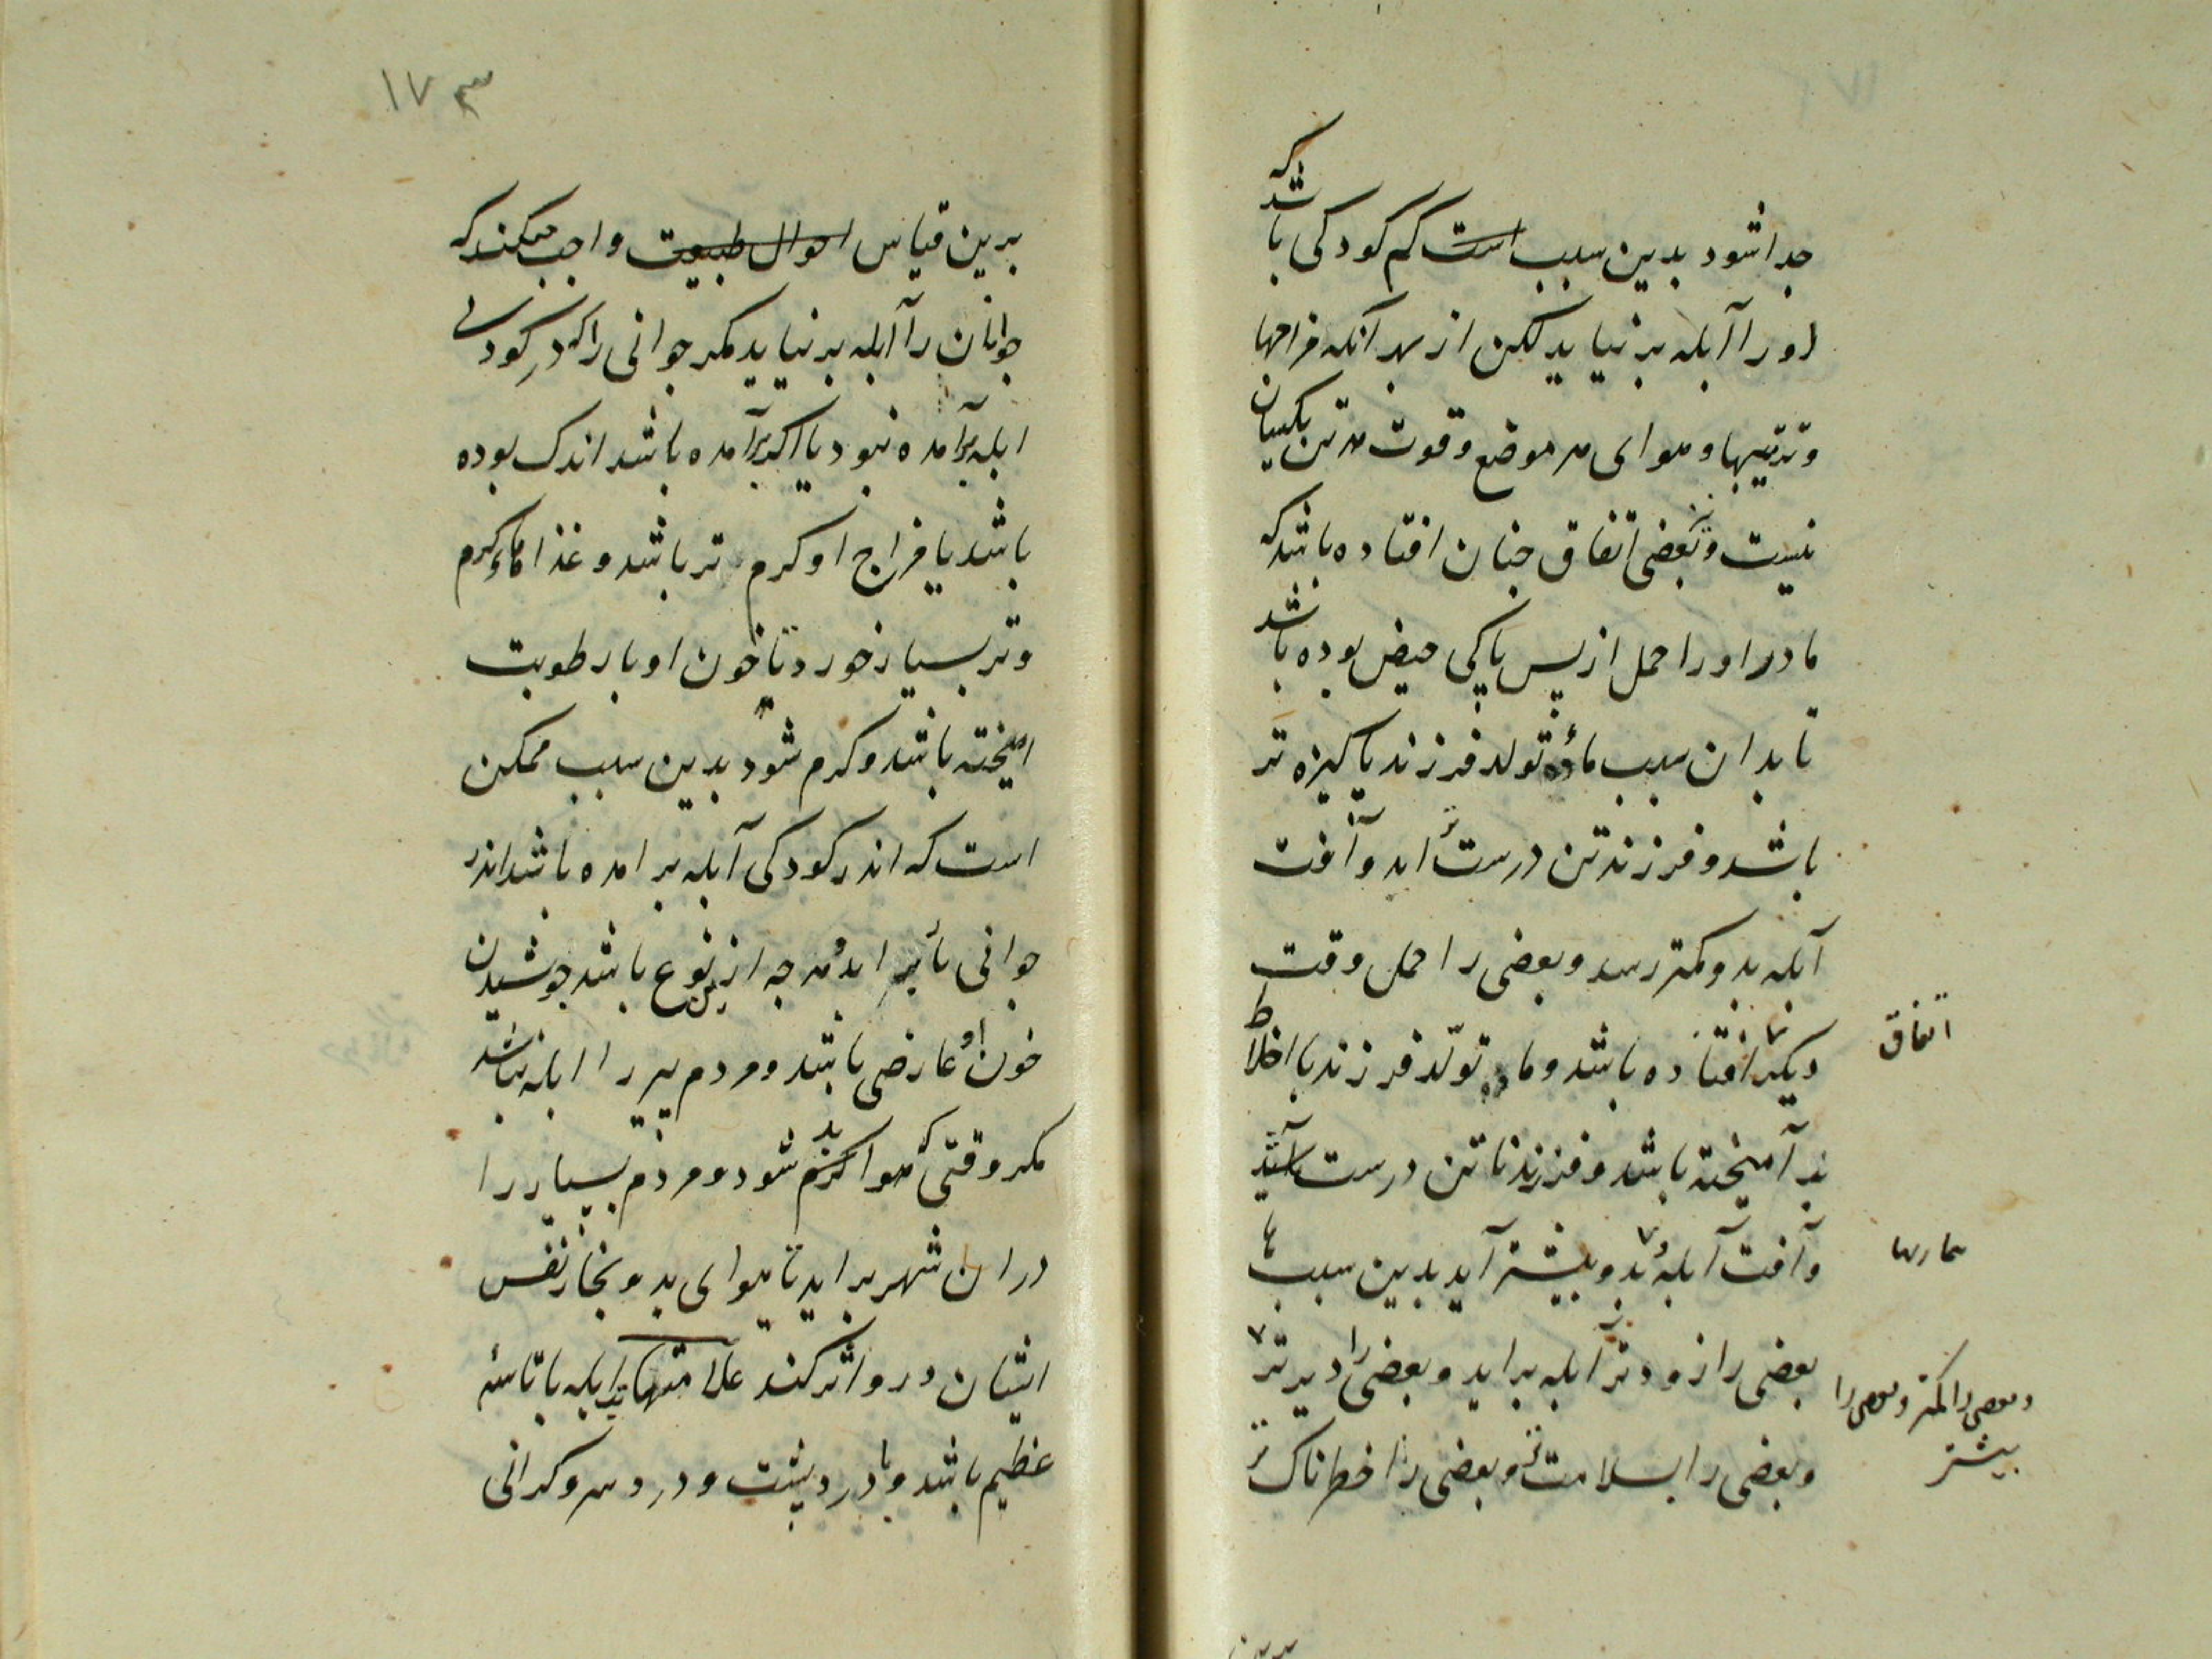 جدا شود بدین سبب است کم کودکی باشد که
او را آبله بر نیاید لکن از بهر آنکه مزاجها
و ترتیبها و هوای هر موضع و قوت هر تن یکسان
نیست و بعضی اتفاق چنان افتاده باشد که
مادر او را حمل از پس پاکی حیض بوده باشد
تا بدان سبب ماده تولد فرزند پاکیزه تر
باشد و فرزند تن درست اید و آفت
آبله بدو کمتر رسد و بعضی را حمل وقت
دیکر افتاده باشد و ماده تولّد فرزند با اخلاط
اتفاق
بد آمیخته باشد و فرزند ناتن درست آید
و آفت آبله بدو بیشتر آید بدین سبب
بعضی را زودتر آبله براید و بعضی را دیرتر
و بعضی را کمتر و بعضی را
بیشتر
و بعضی را بسلامت تر و بعضی را خطرناک تر
بدین
١٧٣
برین قیاس احوال طبیعت واجب میکند که
جوانان را آبله بر نیاید مکر جوانی را که در کودکی
ابله برآمده نبود یا اکر برآمده باشد اندک بوده
باشد یا مزاج او کرم تر باشد و غذاهاء کرم
و تر بسیار خورد تا خون او با رطوبت
امیخته باشد و کرم شود بدین سبب ممکن
است که اندر کودکی آبله بر امده باشد اندر
جوانی باز بر اید و هر چه ازین نوع باشد جوشیدن
خون او عارضی باشد و مردم پیر را ابله نباشد
مکر وقتی که هوا کرم شود و مردم بسیار را
در ان شهر براید تا هوای بد و بخار نفس
ایشان درو اثر کند علامتهاء ابله با تاسهٔ
عظیم باشد و با درد پشت و درد سر و کرانی